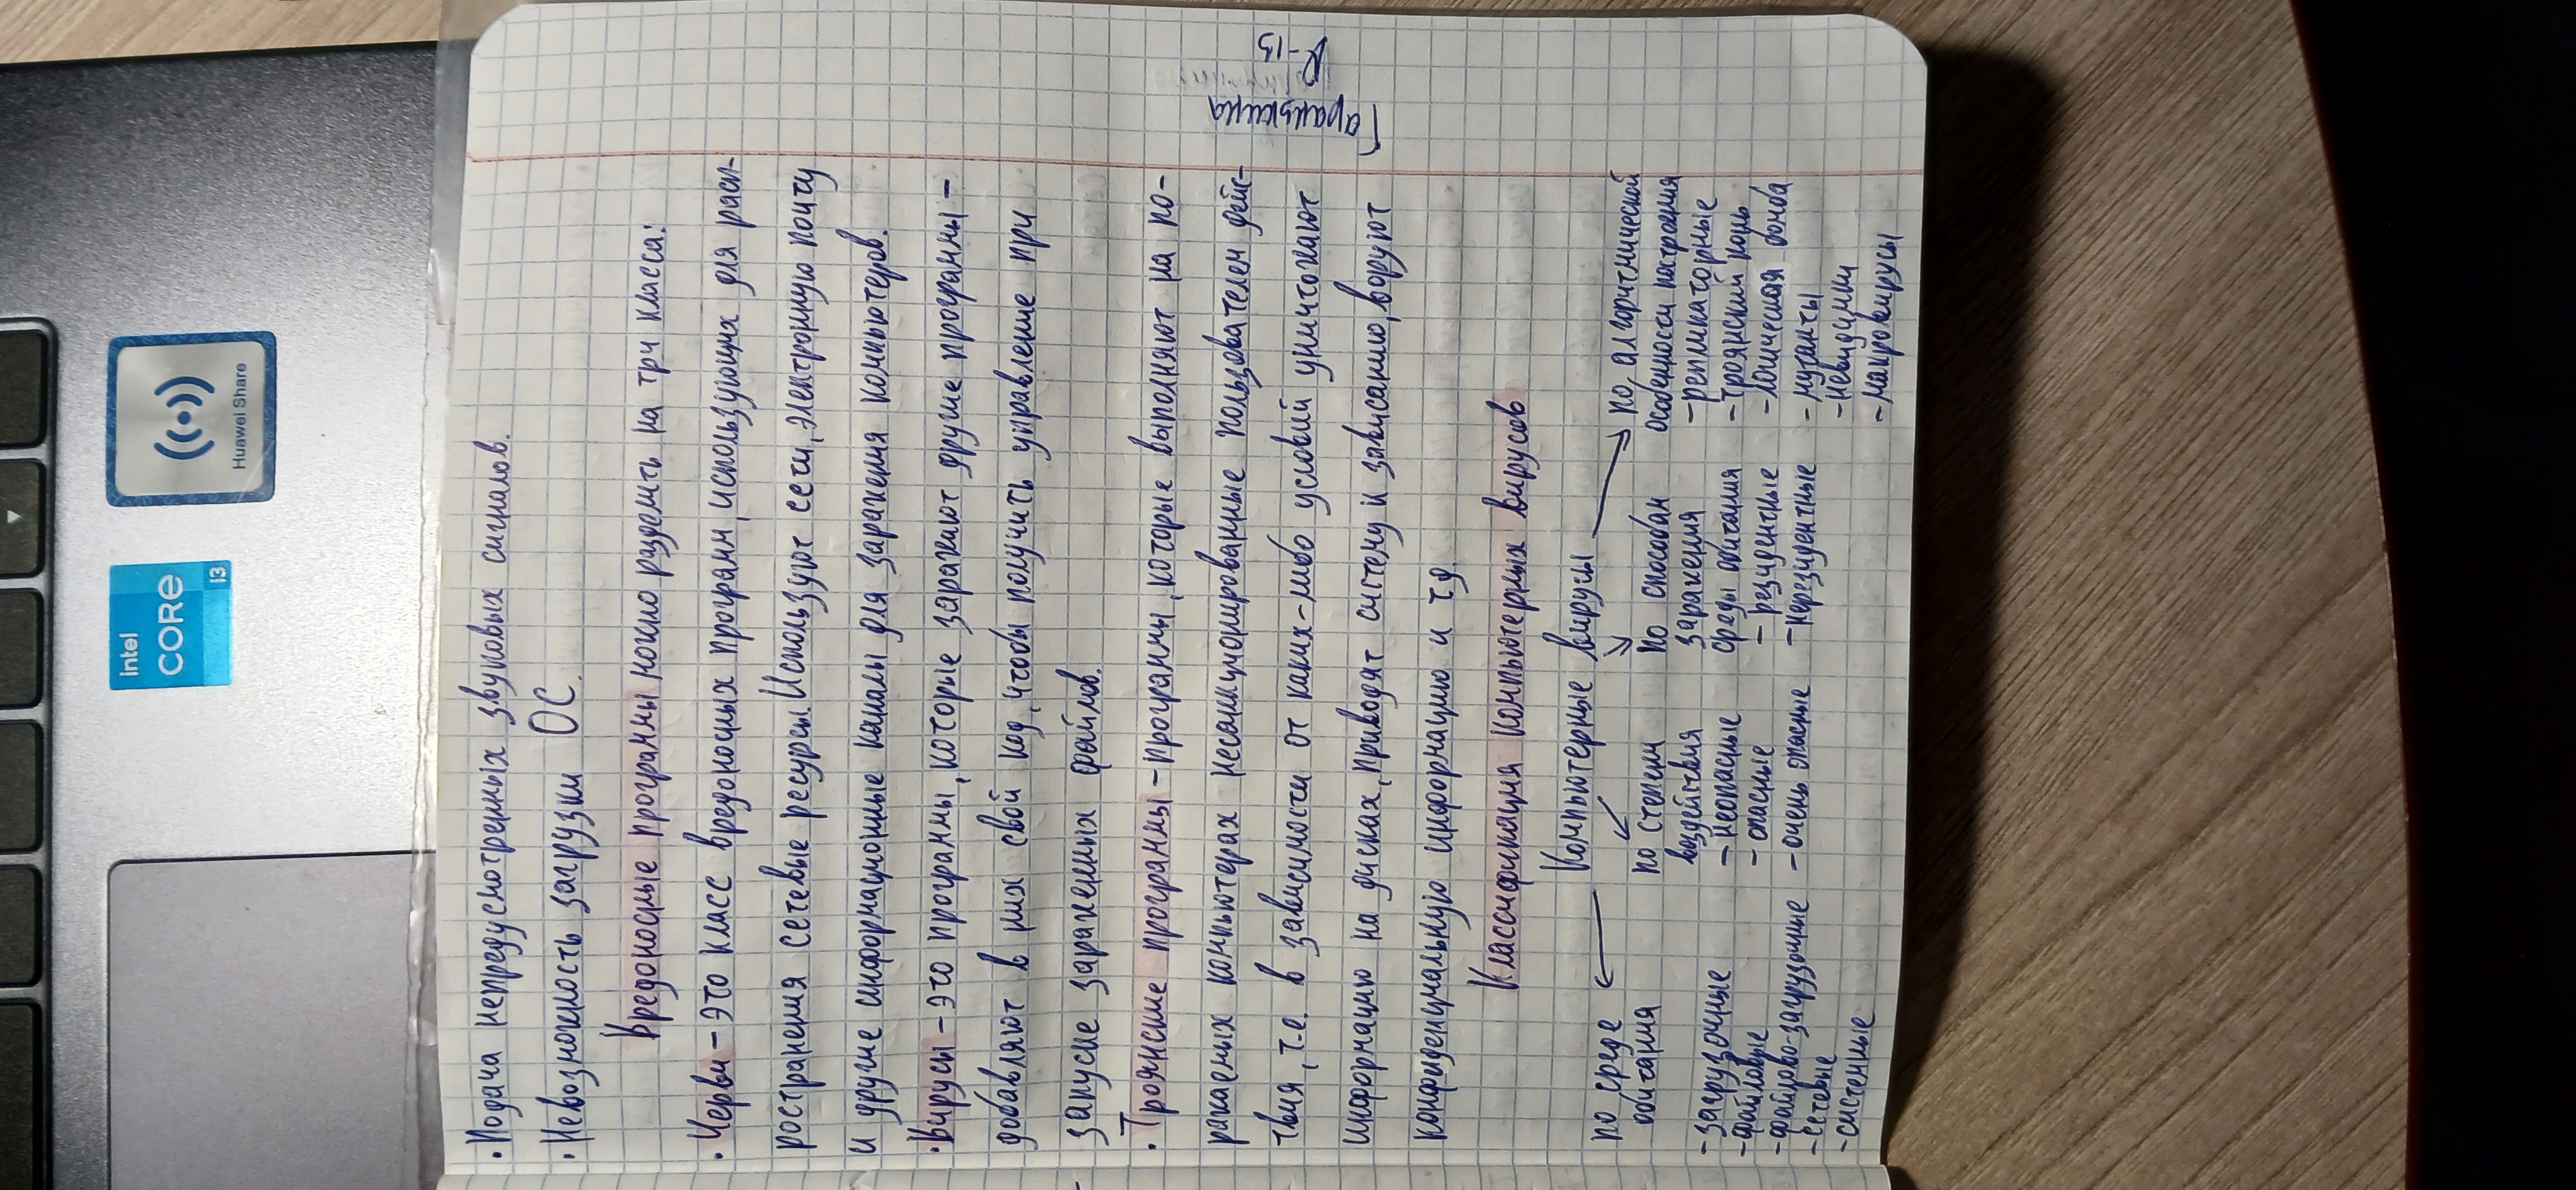 • Подача непредусмотренных звуковых сигналов.
• Невозможность загрузки ОС.
Вредоносные программы можно разделить на три класса:
• Черви – это класс вредоносных программ, использующих для расп-
ространения сетевые ресурсы. Используют сети, электронную почту
и другие информационные каналы для заражения компьютеров.
• Вирусы – это программы, которые заражают другие программы –
добавляют в них свой код, чтобы получить управление при
запуске зараженных файлов.
• Троянские программы – программы, которые выполняют на по-
ражаемых компьютерах несанкционированные пользователем дейс-
твия, т.е. в зависимости от каких-либо условий уничтожают
информацию на дисках, приводят систему к зависанию, воруют
конфиденциальную информацию и тд.
Классификация компьютерных вирусов
Компьютерные вирусы
по среде
обитания
- загрузочные
- файловые
- файлово-загрузочные
- сетевые
- системные
по степени
воздействия
- неопасные
- опасные
- очень опасные
по способам
заражения
среды обитания
- резидентные
- нерезидентные
по алгоритмической
особенности построения
- репликаторные
- троянский конь
- логическая бомба
- мутанты
- невидимки
- макровирусы
Гаранькина
К-13
intel
CORE
i3
Huawei Share